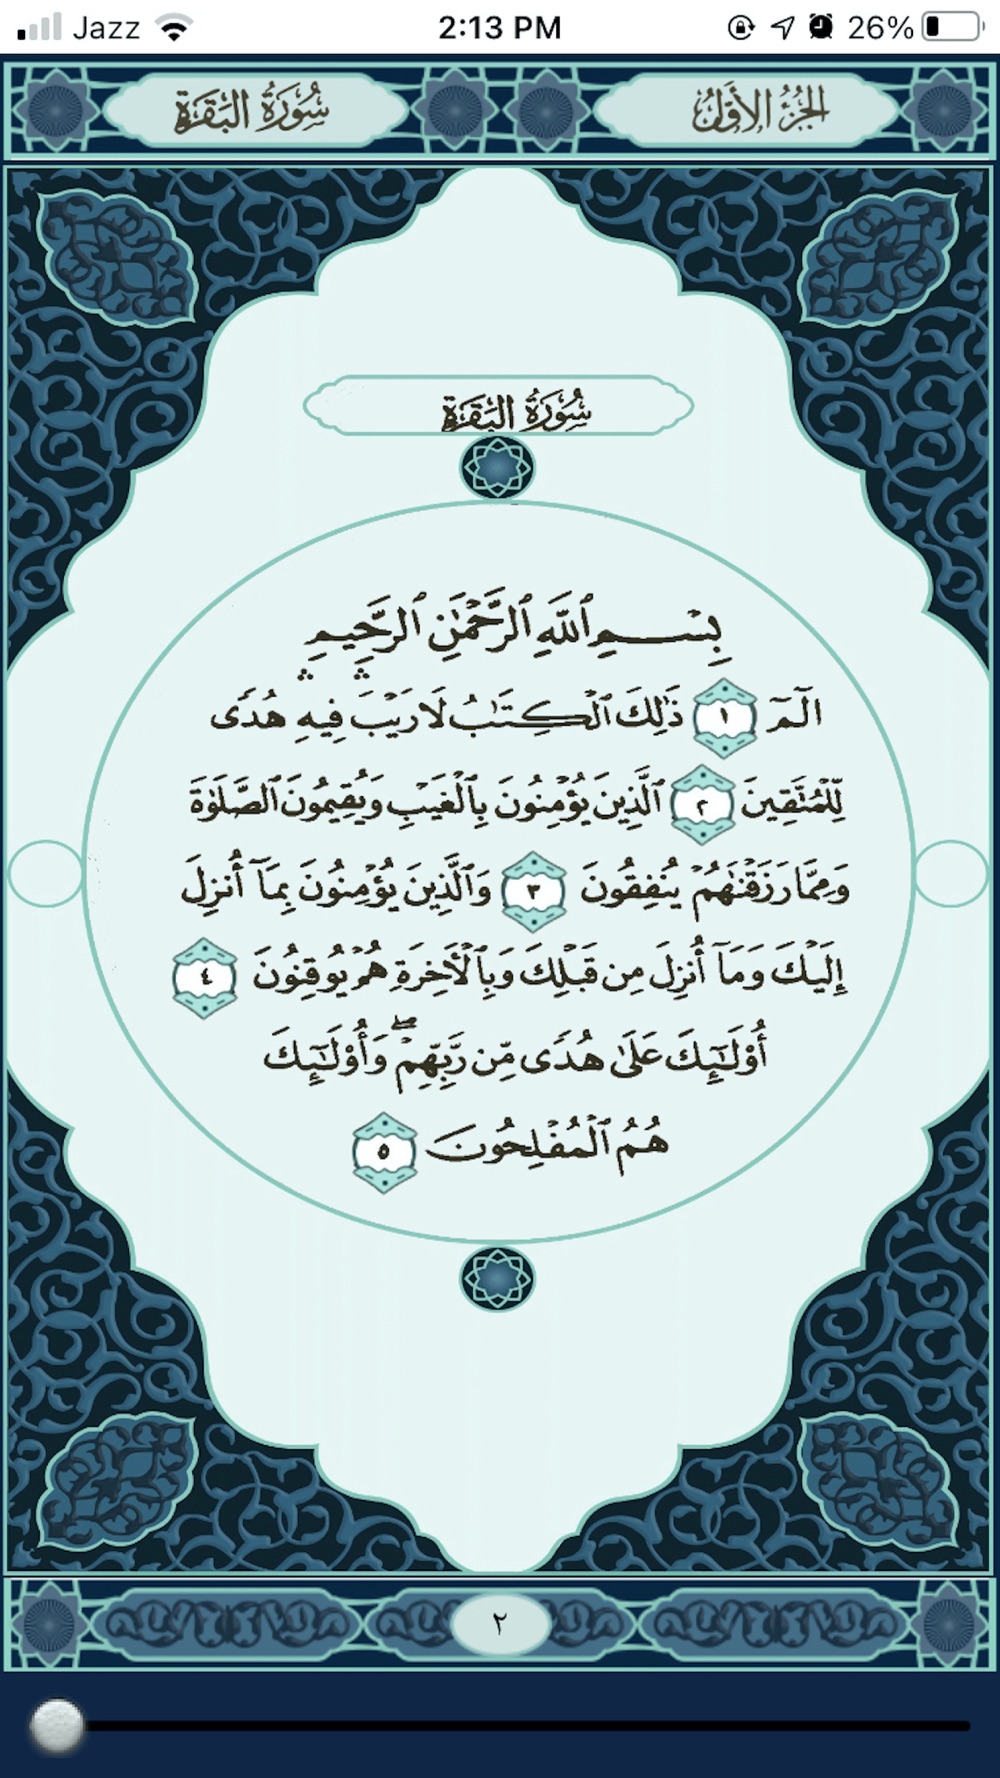 Jazz 2:13 PM 26%
الجُزْءُ الأَوَّلُ سُورَةُ البَقَرَةِ
سُورَةُ البَقَرَةِ
بِسْمِ ٱللَّهِ ٱلرَّحْمَٰنِ ٱلرَّحِيمِ
الٓمٓ ١ ذَٰلِكَ ٱلْكِتَٰبُ لَا رَيْبَ ۛ فِيهِ ۛ هُدًى
لِّلْمُتَّقِينَ ٢ ٱلَّذِينَ يُؤْمِنُونَ بِٱلْغَيْبِ وَيُقِيمُونَ ٱلصَّلَوٰةَ
وَمِمَّا رَزَقْنَٰهُمْ يُنفِقُونَ ٣ وَٱلَّذِينَ يُؤْمِنُونَ بِمَآ أُنزِلَ
إِلَيْكَ وَمَآ أُنزِلَ مِن قَبْلِكَ وَبِٱلْأَخِرَةِ هُمْ يُوقِنُونَ ٤
أُو۟لَٰٓئِكَ عَلَىٰ هُدًى مِّن رَّبِّهِمْ ۖ وَأُو۟لَٰٓئِكَ
هُمُ ٱلْمُفْلِحُونَ ٥
٢